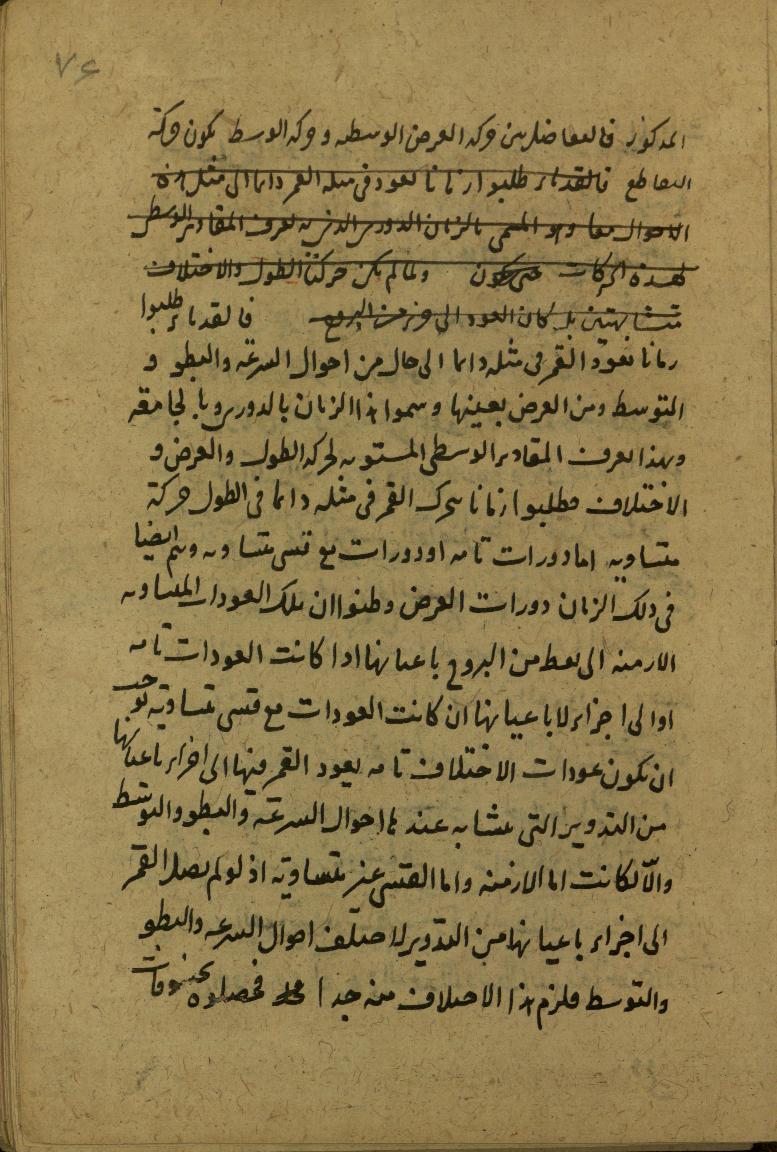 ٧٤
المذكور فالتفاضل بين حركة العرض الوسطيه و حركة الوسط يكون حركة
التقاطع فالقدماء طلبوا زمانا يعود فى مثله القمر دائما الى مثل هذه
الاحوال معا وهو المسمى بالزمان الدورى الذى به تعرف المقادير الوسطى
لهذه الحركات حتى يكون ولما لم يكن حركتا الطول والاختلاف
متشابهتين بل كان العود الى جزء من البروج فالقدماء طلبوا
زمانا يعود القمر فى مثله دائما الى حال من احوال السرعة والبطو و
التوسط ومن العرض بعينها وسموا هذا الزمان بالدورى وبالجامعة
وبهذا تعرف المقادير الوسطى المستويه لحركه الطول والعرض و
الاختلاف فطلبوا زمانا يتحرك القمر فى مثله دائما فى الطول حركة
متساويه اما دورات تامه او دورات مع قسى متساويه ويتم ايضا
فى ذلك الزمان دورات العرض وظنوا ان تلك العودات المتساويه
الازمنه الى نقط من البروج باعيانها اذا كانت العودات تامه
او الى اجزاء لا باعيانها ان كانت العودات مع قسى متساوية توجب
ان يكون عودات الاختلاف تامه يعود القمر فيها الى اجزاء باعيانها
من التدوير التى يتشابه عندها احوال السرعة والبطو والتوسط
والّا لكانت اما الازمنه واما القسى غير متساوية اذ لو لم يصل القمر
الى اجزاء باعيانها من التدوير لاختلف احوال السرعه والبطو
والتوسط فلزم هذا الاختلاف منه جدا فحصلوه بخسوفات